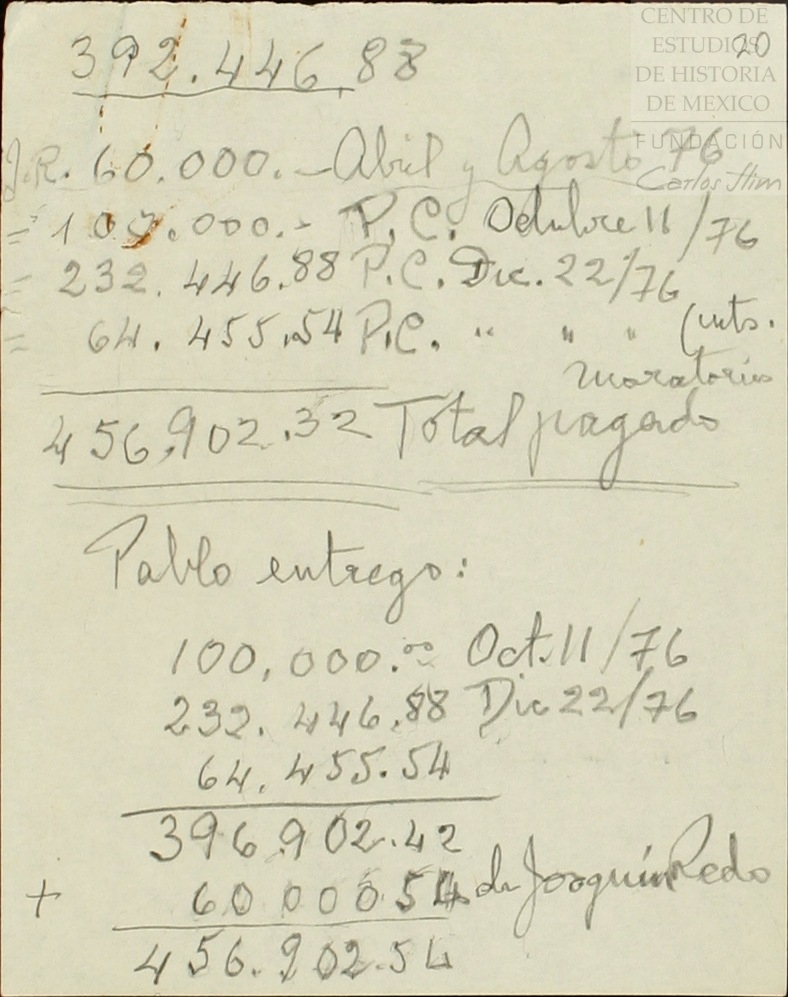 CENTRO DE
ESTUDIOS
DE HISTORIA
DE MEXICO
FUNDACIÓN
Carlos Slim
20
392.446.88
J.R. 60.000.- Abril y Agosto 76
= 100.000.- P.C. Octubre 11/76
= 232.446.88 P.C. Dic. 22/76
= 64.455.54 P.C. " " " (ints.
moratorios
456,902.32 Total pagado
Pablo entrego:
100,000.00 Oct. 11/76
232.446.88 Dic 22/76
64.455.54
396.902.42
+ 60.000.54 de Joaquín Redo
456.902.54